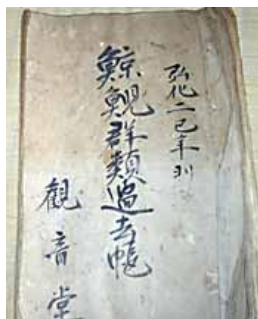 弘化二巳年
鯨鯢群類過去帳
観音堂